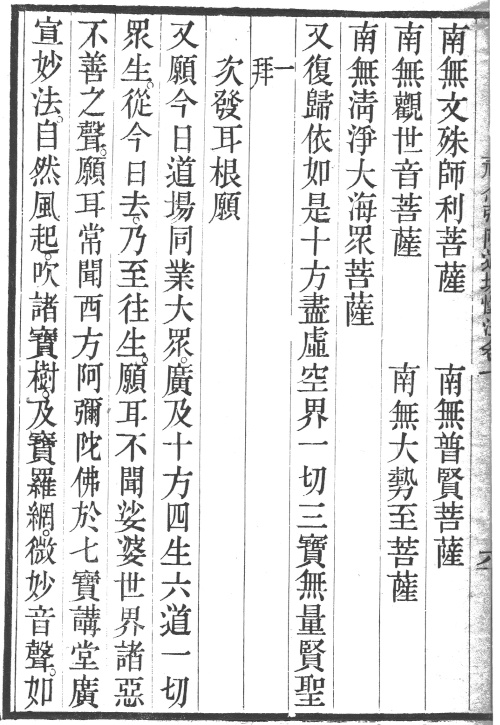 南無文殊師利菩薩　南無普賢菩薩
南無觀世音菩薩　南無大勢至菩薩
南無清淨大海眾菩薩
又復歸依如是十方盡虛空界一切三寶無量賢聖
一拜
次發耳根願
又願今日道場同業大眾。廣及十方四生六道一切
眾生。從今日去。乃至往生。願耳不聞娑婆世界諸惡
不善之聲。願耳常聞西方阿彌陀佛於七寶講堂廣
宣妙法。自然風起。吹諸寶樹。及寶羅網。微妙音聲。如